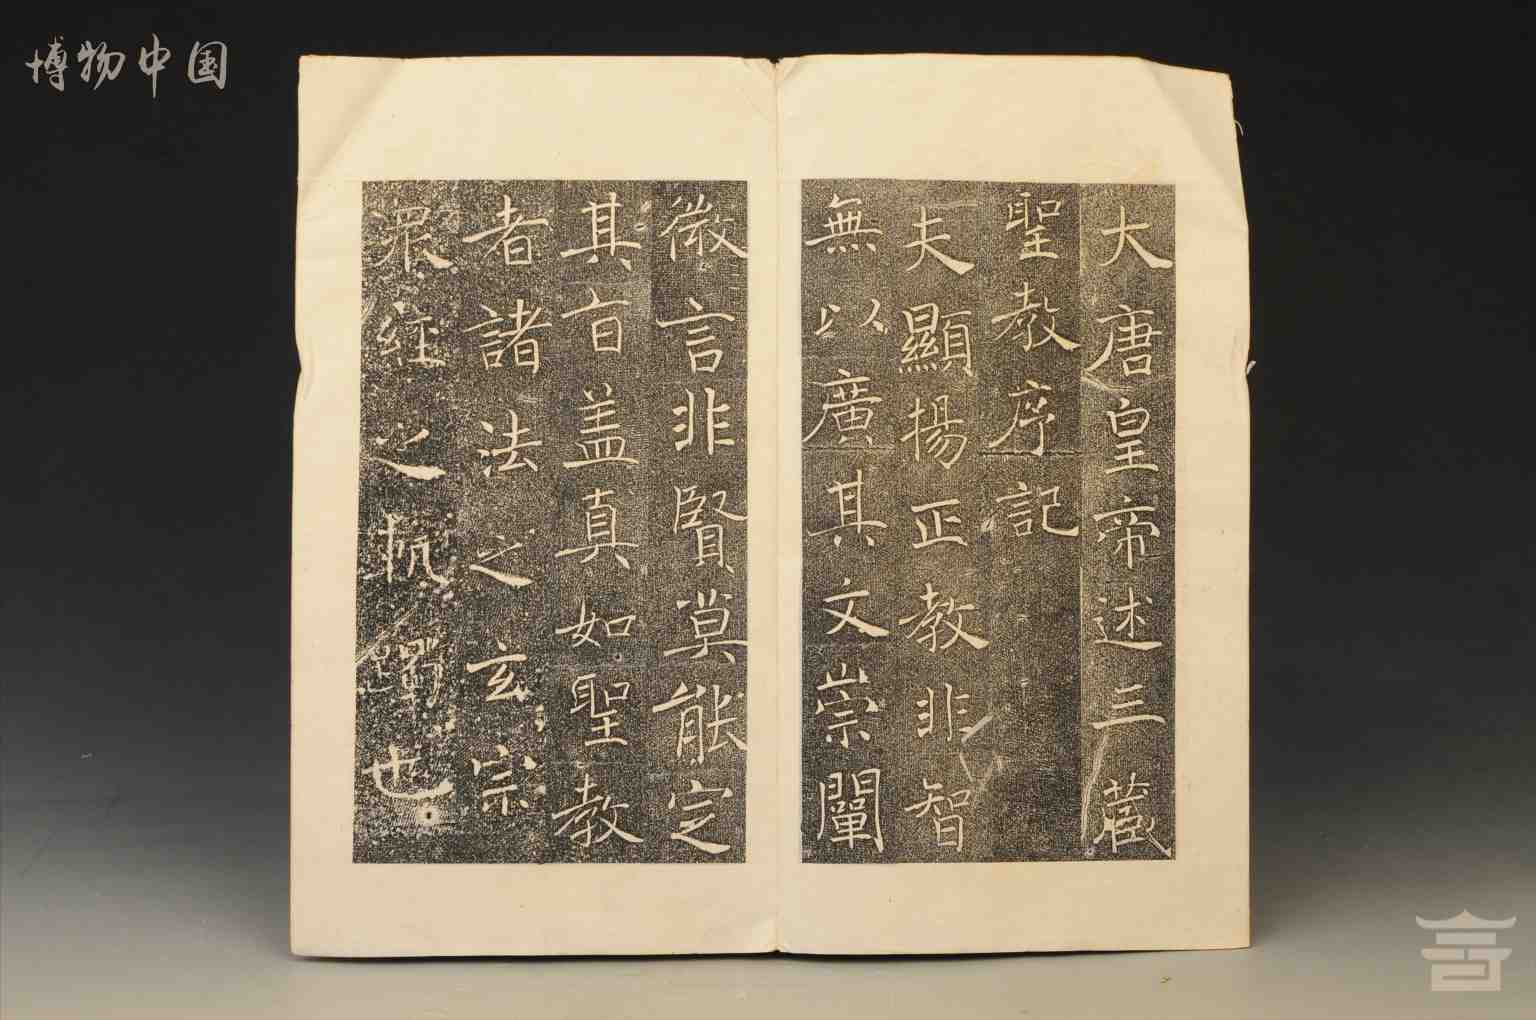 博物中国
大唐皇帝述三藏
聖教序記
夫顯揚正教非智
無以廣其文崇闡
微言非賢莫能定
其旨盖真如聖教
者諸法之玄宗
眾經之軌躅也